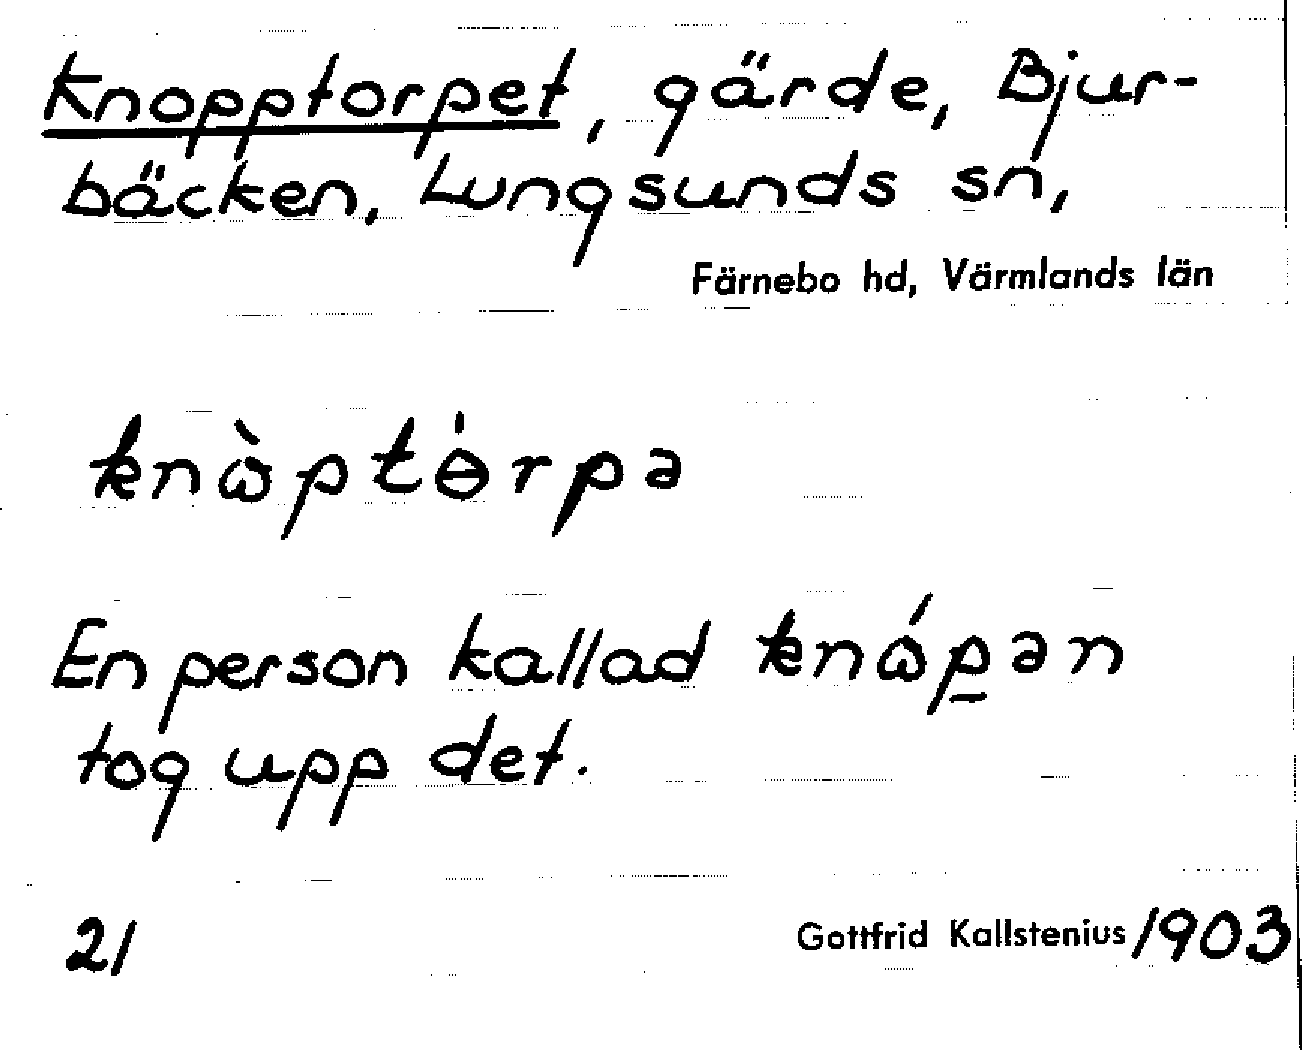 Knopptorpet, gärde, Bjur-
bäcken, Lungsunds sn,
Färnebo hd, Värmlands län
knὼptɵ́rpə
En person kallad knώp̱ən
tog upp det.
21
Gottfrid Kallstenius 1903